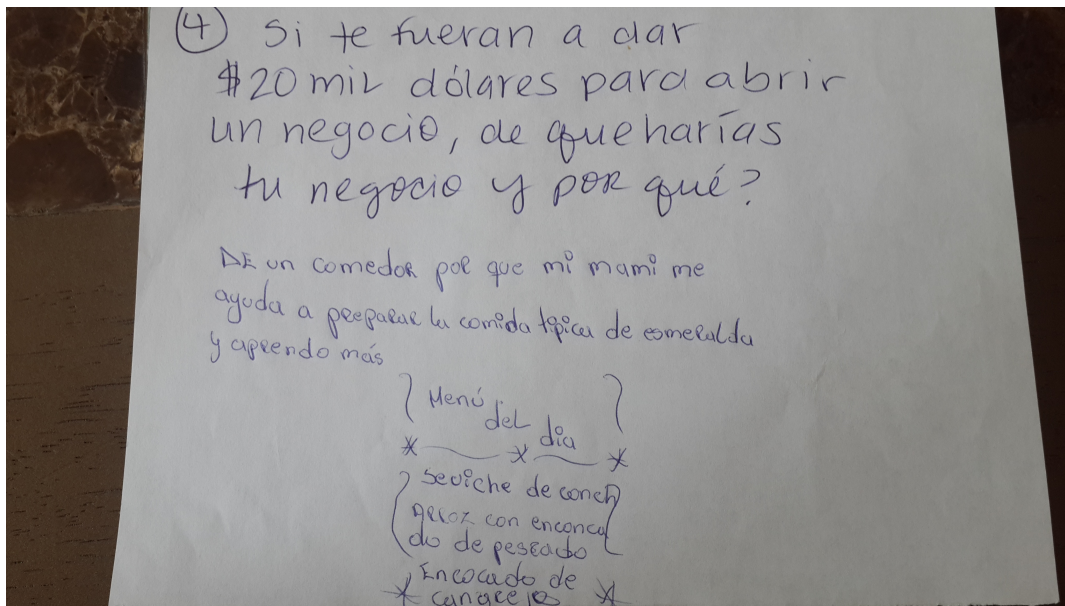 ④ Si te fueran a dar
$20 mil dólares para abrir
un negocio, de que harías
tu negocio y por qué?
DE un comedor por que mi mami me
ayuda a preparar la comida típica de esmeralda
y aprendo más
Menú
del
día
Seviche de conch
Arroz con enconca
do de pescado
Encocado de
cangrejo